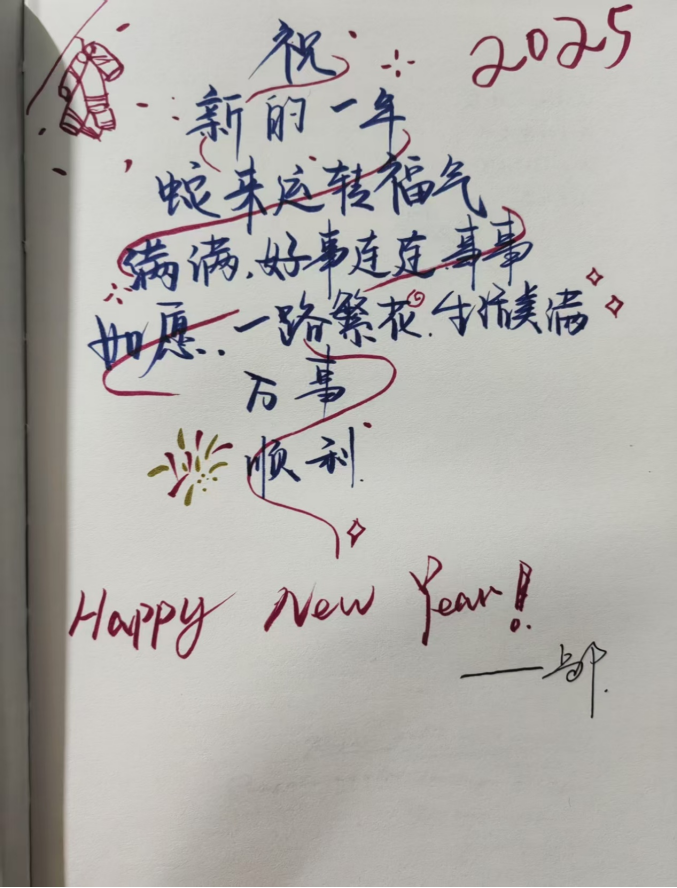 2025
祝
新的一年
蛇来运转福气
满满.好事连连.事事
如愿..一路繁花.生活美满
万事
顺利.
Happy New Year!